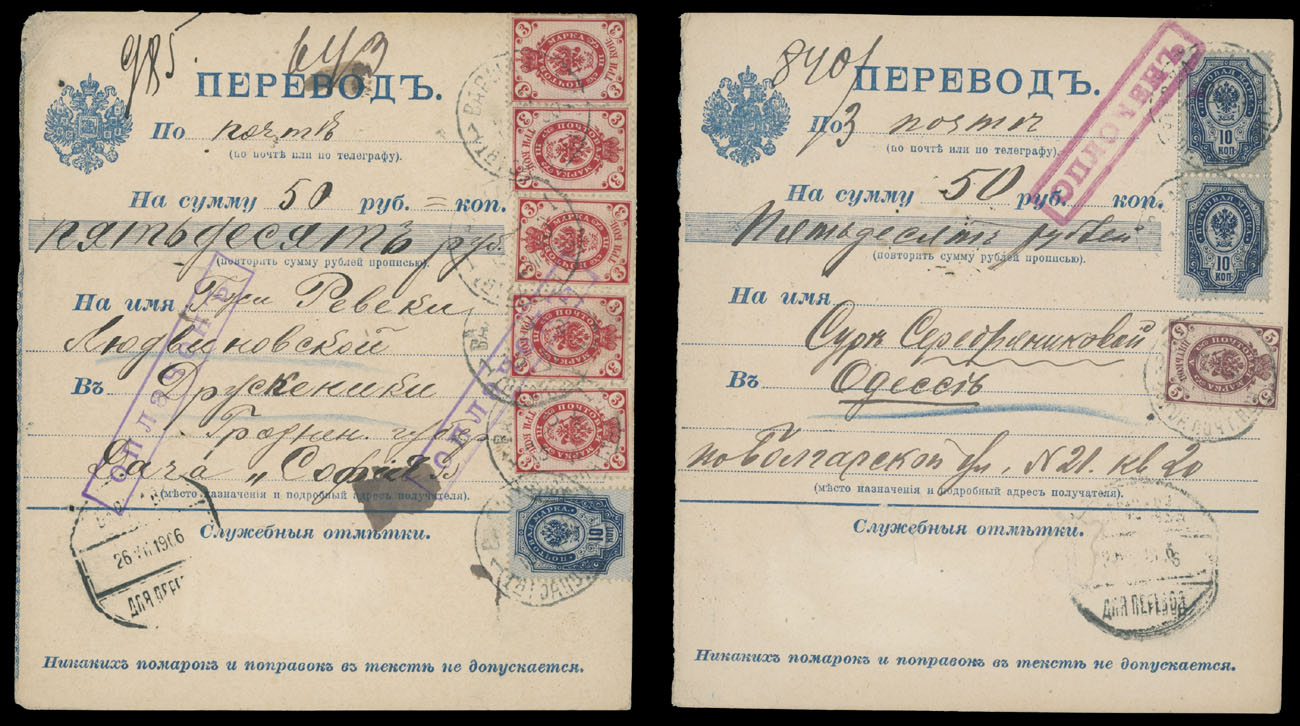 985.
ПЕРЕВОДЪ.
По почтѣ
(по почтѣ или по телеграфу).
На сумму 50 руб. = коп.
пятьдесятъ руб.
(повторить сумму рублей прописью).
На имя Ревеки
Людвиновской
Въ Друскеники
Гроднен. губ.
Дача „Софія"
(мѣсто назначенія и подробный адресъ получателя).
Служебныя отмѣтки.
26 VII 1906
ДЛЯ ПЕРЕ
Никакихъ помарокъ и поправокъ въ текстѣ не допускается.
ОПЛАЧЕНЪ
МАРКА
3
ТРИ КОП.
10
КОП
ПОЧТОВАЯ МАРКА
ПЕРЕВОДЪ.
По почтѣ
(по почтѣ или по телеграфу).
На сумму 50 руб. коп.
Пятьдесятъ рублей
(повторить сумму рублей прописью).
На имя
Сурѣ Серебряниковой
Въ Одессѣ
по Болгарской ул. N 21. кв 20
(мѣсто назначенія и подробный адресъ получателя).
Служебныя отмѣтки.
ДЛЯ ПЕРЕВОД
Никакихъ помарокъ и поправокъ въ текстѣ не допускается.
ОПЛОЧЕНЪ
ПОЧТОВАЯ МАРКА
10
КОП
ПОЧТОВАЯ МАРКА
10
КОП
5